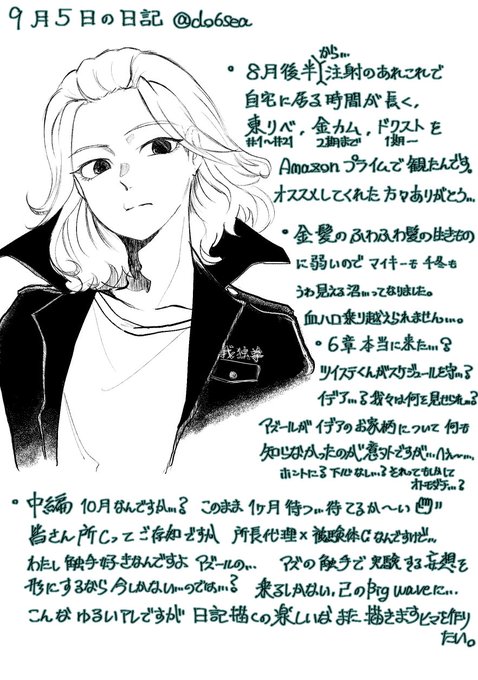 9月5日の日記 @do6sea
・8月後半から… 注射のあれこれで
自宅に居る時間が長く,
東リベ, 金カム, ドクストを
#1〜#21 2期まで 1期一
Amazonプライムで観たんです。
オススメしてくれた方々ありがとう…
・金髪のふわふわ髪の生きもの
に弱いので マイキーも 千冬も
うわ見える沼…ってなりました。
血ハロ乗り越えられません…。
我独尊
・6章本当に来た…?
ツイステくんがスケジュールを守…?
イデア…? 我々は何を見せられ…?
アズールがイデアのお家柄について 何も
知らなかったのが意外ですが…
ホントに? 下心なし…? それってもしかして
オトモダチ…?
・中編 10月なんですか…? このまま 1ヶ月 待つ… 待てるか〜い
皆さん 所Cって ご存知ですか 所長代理×被験体Cなんですけど…
わたし 触手好きなんですよ アズールの… アズの触手で実験する妄想を
形にするなら今しかない…のでは…? 乗るしかない, このBig waveに…
こんな ゆるいアレですが 日記描くの楽しいな また 描きます ヒマを作り
たい。